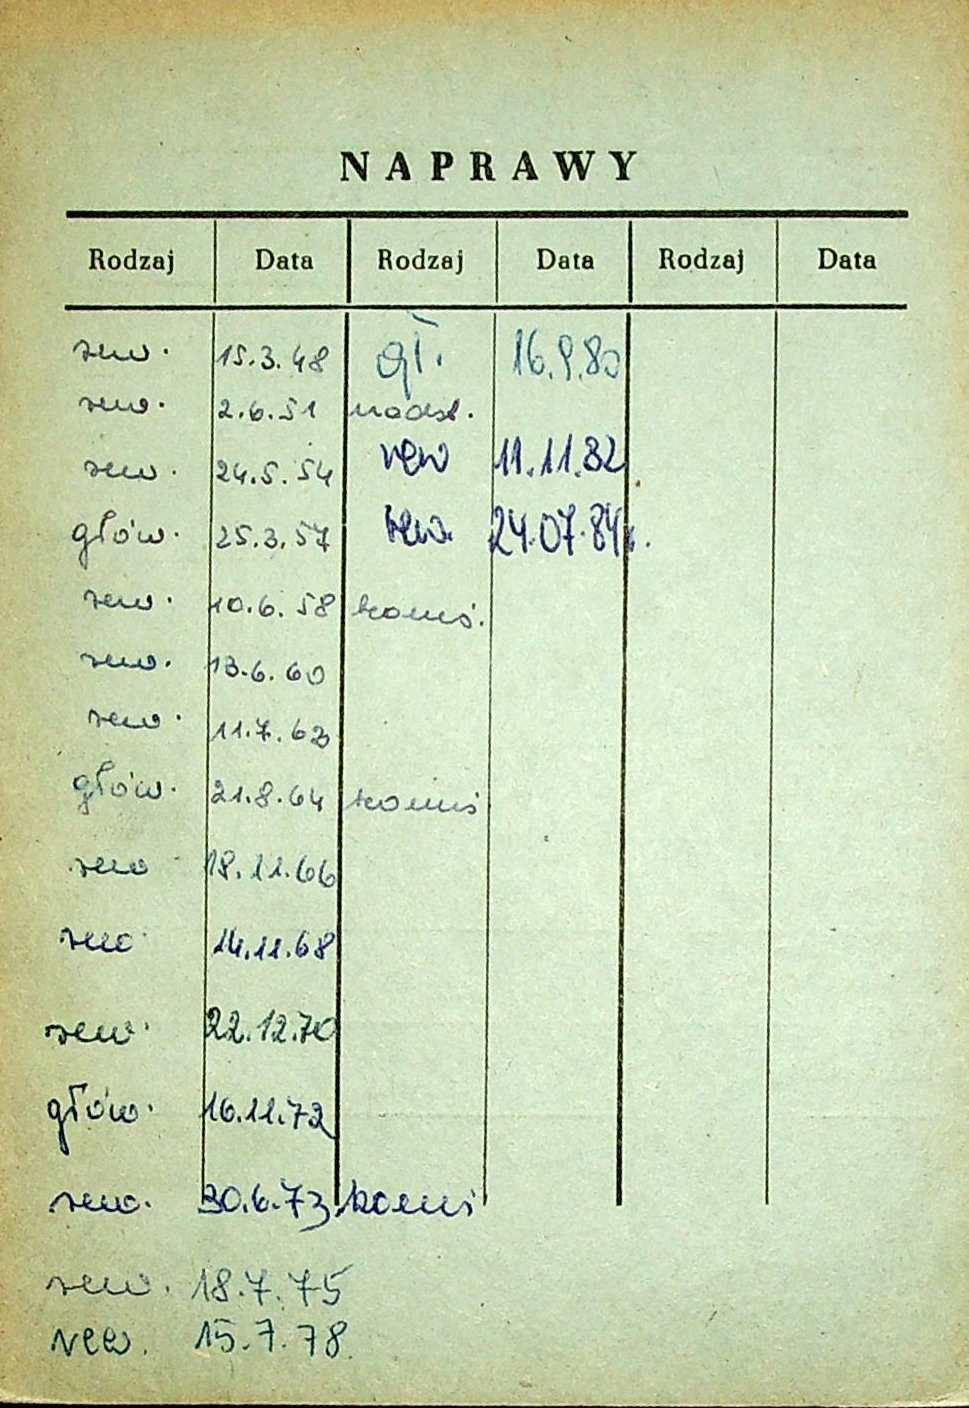 NAPRAWY
Rodzaj Data Rodzaj Data Rodzaj Data
rew. 15.3.48 gł. 16.9.80
rew. 2.6.51 nadst.
rew. 24.5.54 rew 11.11.82
głów. 25.3.57 rew. 24.07.84r.
rew. 10.6.58 komś.
rew. 13.6.60
rew. 11.7.63
głów. 21.8.64 komś
rew 18.11.66
rew 14.11.68
rew. 22.12.70
głów. 16.11.72
rew. 30.6.73 komś
rew. 18.7.75
rew. 15.7.78